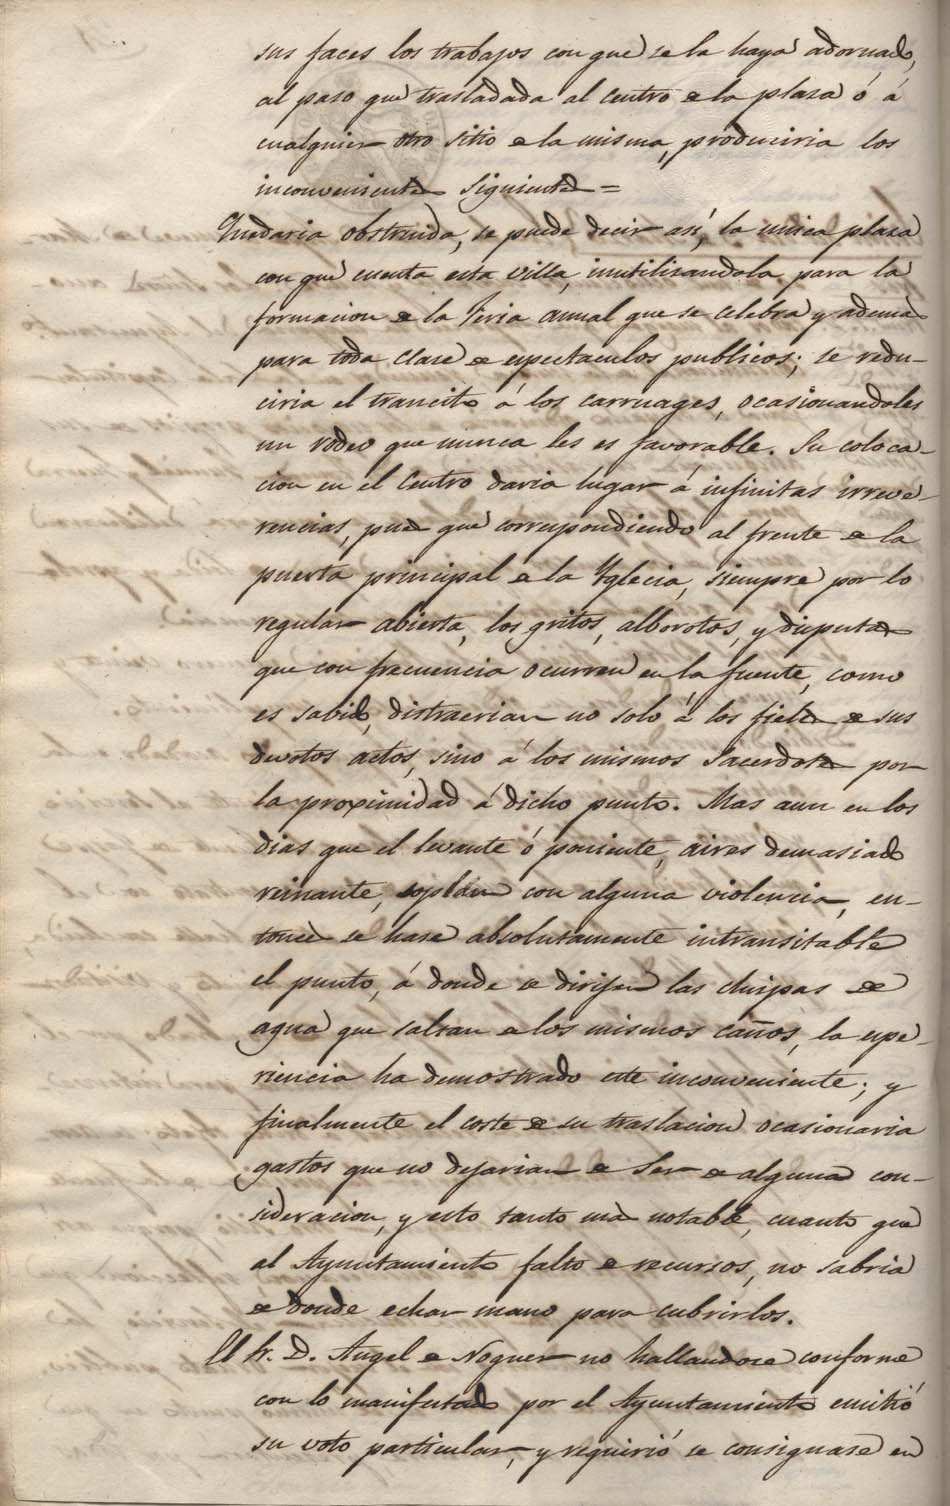 sus faces los trabajos con que se la haya adornado,
al paso que trasladada al centro de la plasa ó á
cualquier otro sitio de la misma, produciria los
inconvenientes siguientes =
Quedaria obstruida, se puede decir así, la unica plasa
con que cuenta esta villa, inutilisandola para la
formacion de la feria annal que se celebra y ademas
para toda clase de espectaculos publicos; se redu-
ciria el trancito á los carruages, ocasionandoles
un rodeo que nunca les es favorable. Su coloca-
cion en el Centro daria lugar á infinitas irreve-
rencias, pues que correspondiendo al frente de la
puerta principal de la Yglecia, siempre por lo
regular abierta, los gritos, alborotos, y disputas
que con frecuencia ocurren en la fuente, como
es sabido, distraerian no solo á los fieles de sus
devotos actos, sino á los mismos Sacerdotes por
la proximidad á dicho punto. Mas aun en los
dias que el levante ó poniente, aires demasiado
reinante, soplan con alguna violencia, en-
tonces se hase absolutamente intransitable
el punto, á donde se dirijen las chispas de
agua que saltan de los mismos caños, la espe-
riencia ha demostrado este inconveniente; y
finalmente el coste de su traslacion ocasionaria
gastos que no dejarian de ser de alguna con-
sideracion, y esto tanto mas notable, cuanto que
el Ayuntamiento falto de recursos, no sabria
de donde echar mano para cubrirlos.
El Sr. D. Angel de Noguer no hallandose conforme
con lo manifestado por el Ayuntamiento emitió
su voto particular, y requirió se consignase en